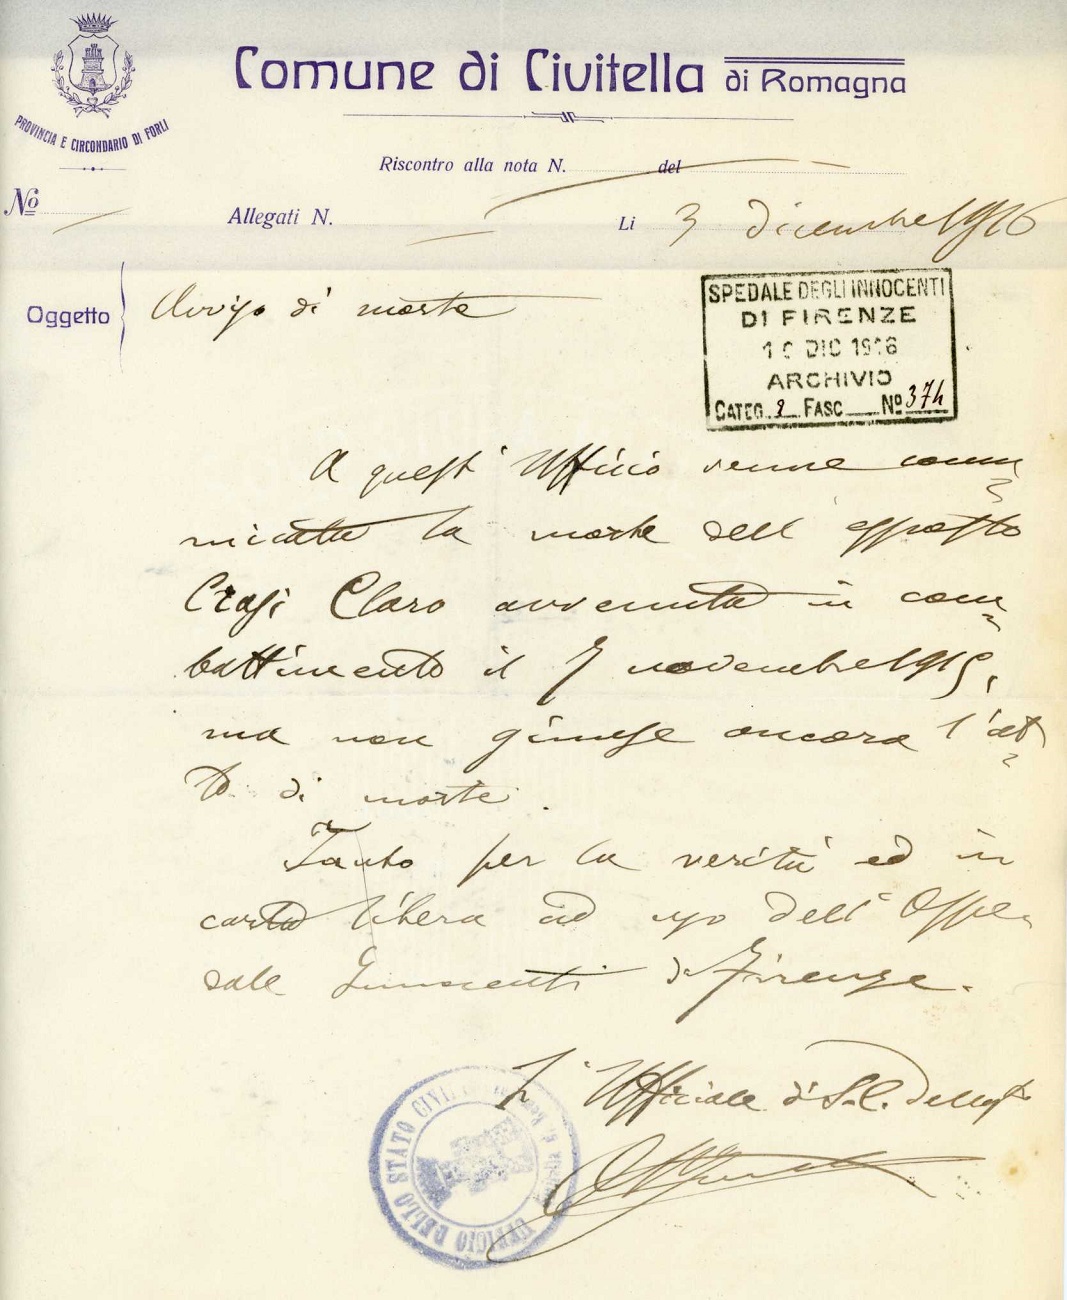 Comune di Civitella di Romagna
PROVINCIA E CIRCONDARIO DI FORLI
Riscontro alla nota N. del
Nº
Allegati N.
Li 3 dicembre 1916
Oggetto Avviso di morte
SPEDALE DEGLI INNOCENTI
DI FIRENZE
10 DIC 1916
ARCHIVIO
CATEG. 2 FASC Nº 374
A quest'Ufficio venne comu
nicata la morte dell'esposto
Crasi Claro avvenuta in com
battimento il 7 novembre 1915,
ma non giunse ancora l'at
to di morte.
Tanto per la verità ed in
carta libera ad uso dell'Ospe
dale Innocenti di Firenze.
L'Ufficiale di S.C. Delegto
UFFICIO DELLO STATO CIVILE